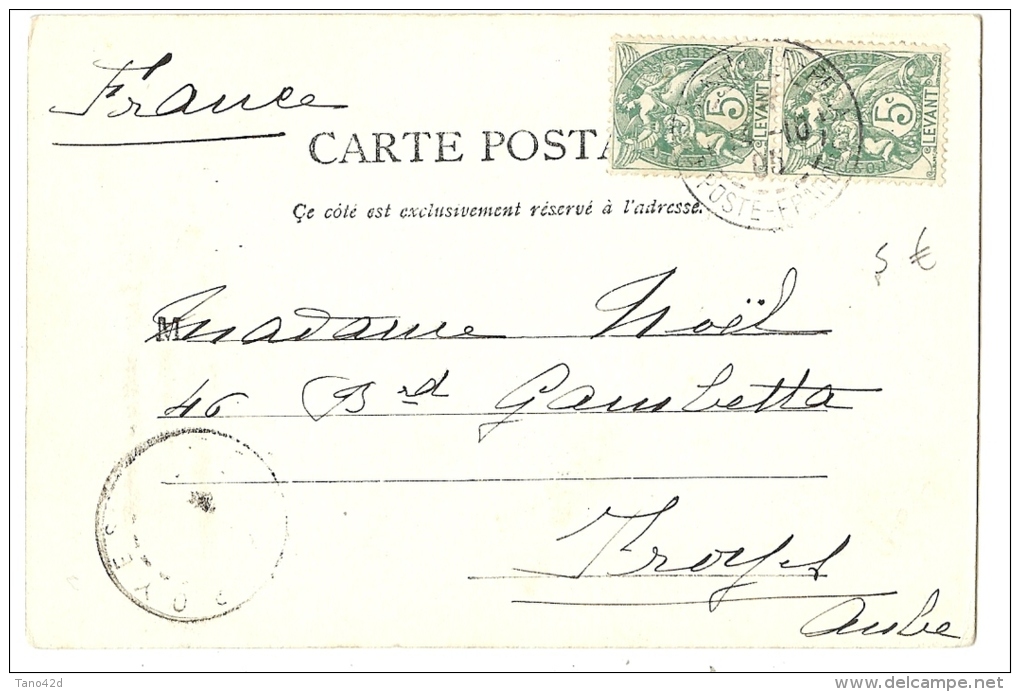 France
CARTE POSTA
Ce côté est exclusivement réservé à l'adresse.
5c
LEVANT
5c
LEVANT
POSTE-FRANÇ
5 €
Madame Noël
46 Brd Gambetta
Troyes
Aube
OYES
Tano42d
delcampe.net